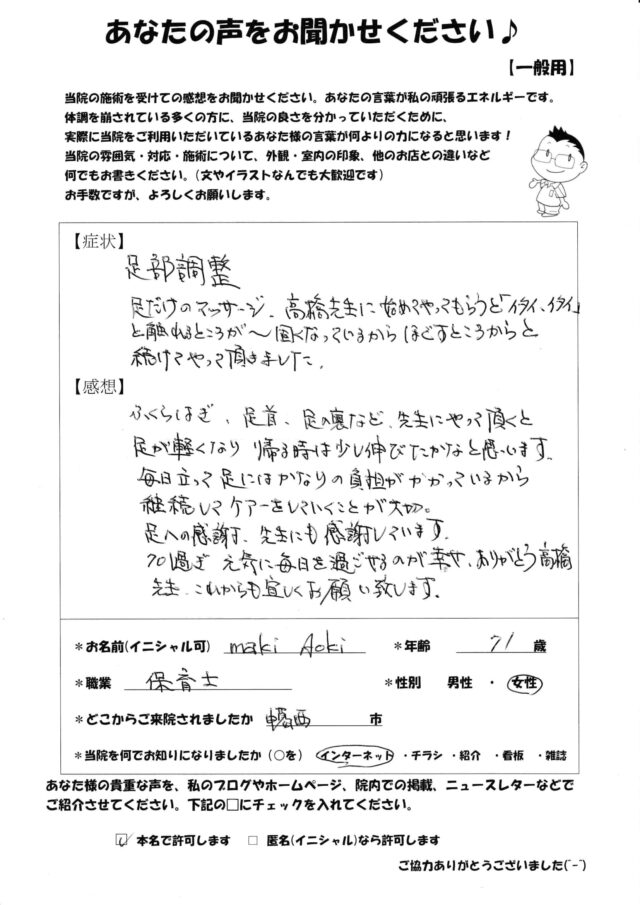 あなたの声をお聞かせください♪
【一般用】
当院の施術を受けての感想をお聞かせください。あなたの言葉が私の頑張るエネルギーです。
体調を崩されている多くの方に、当院の良さを分かっていただくために、
実際に当院をご利用いただいているあなた様の言葉が何よりの力になると思います！
当院の雰囲気・対応・施術について、外観・室内の印象、他のお店との違いなど
何でもお書きください。（文やイラストなんでも大歓迎です）
お手数ですが、よろしくお願いします。
【症状】
足部調整
足だけのマッサージ、高橋先生に始めてやってもらうと「イタイ、イタイ」
と触れるところが〜固くなっているからほぐすところからと
続けてやって頂きました。
【感想】
ふくらはぎ、足首、足の裏など、先生にやって頂くと
足が軽くなり 帰る時は少し伸びたかなと思います。
毎日立って足にはかなりの負担がかかっているから
継続してケアーをしていくことが大切。
足への感謝、先生にも感謝しています。
70過ぎ 元気に毎日を過ごせるのが幸せ、ありがとう高橋
先生、これからも宜しくお願い致します。
＊お名前（イニシャル可） maki Aoki ＊年齢 71 歳
＊職業 保育士 ＊性別 男性 ・ 女性
＊どこからご来院されましたか 市
＊当院を何でお知りになりましたか（○を） インターネット ・チラシ ・紹介 ・看板 ・雑誌
あなた様の貴重な声を、私のブログやホームページ、院内での掲載、ニュースレターなどで
ご紹介させてください。下記の□にチェックを入れてください。
☑ 本名で許可します □ 匿名（イニシャル）なら許可します
ご協力ありがとうございました(´-`)